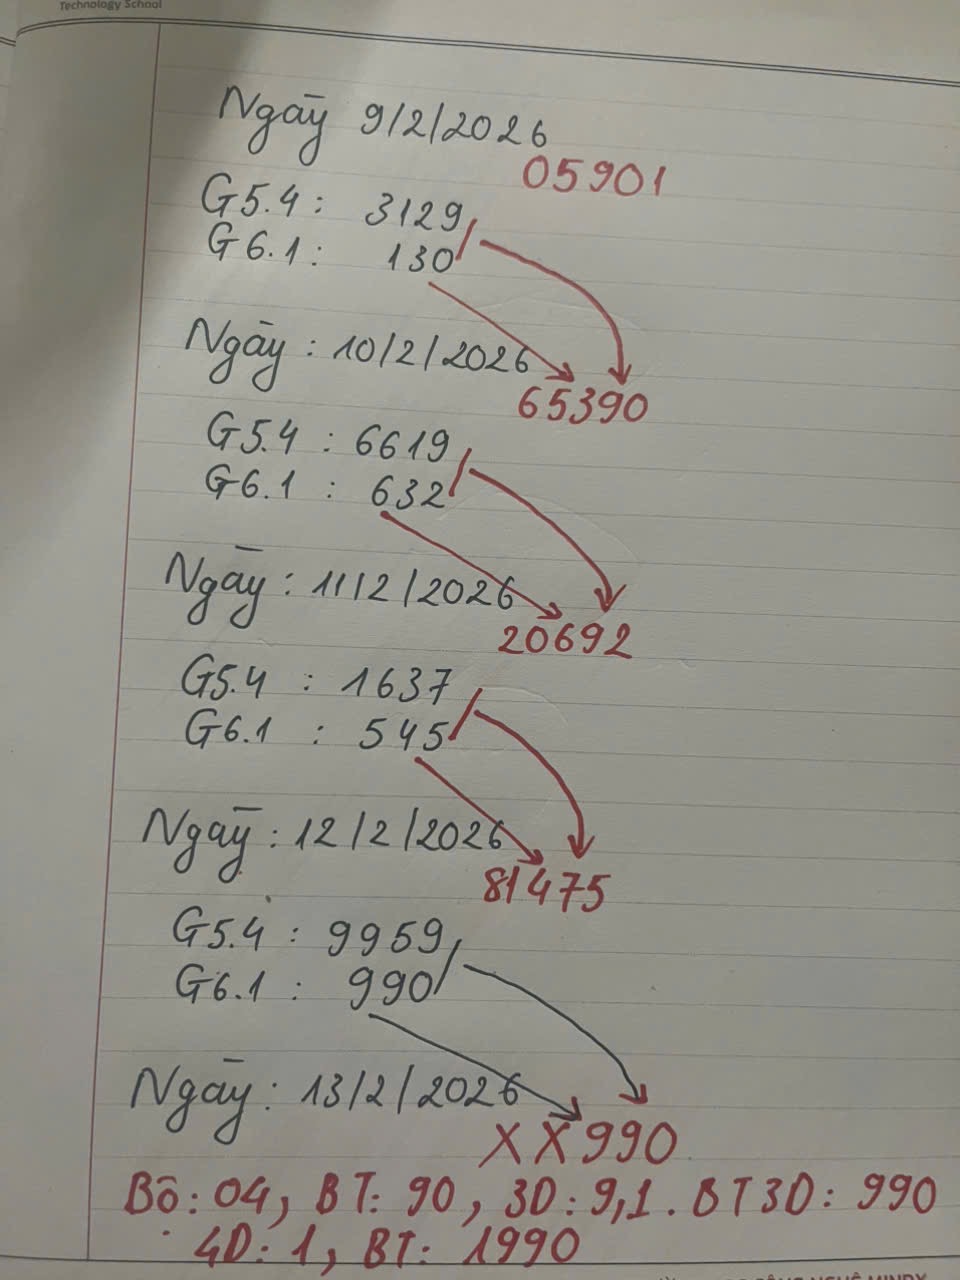 Technology School
Ngày 9/2/2026
05901
G5.4 : 3129
G6.1 : 130
Ngày : 10/2/2026
65390
G5.4 : 6619
G6.1 : 632
Ngày : 11/2/2026
20692
G5.4 : 1637
G6.1 : 545
Ngày : 12/2/2026
81475
G5.4 : 9959
G6.1 : 990
Ngày : 13/2/2026
XX990
Bộ: 04, BT: 90, 3D: 9,1. BT3D: 990
4D: 1, BT: 1990